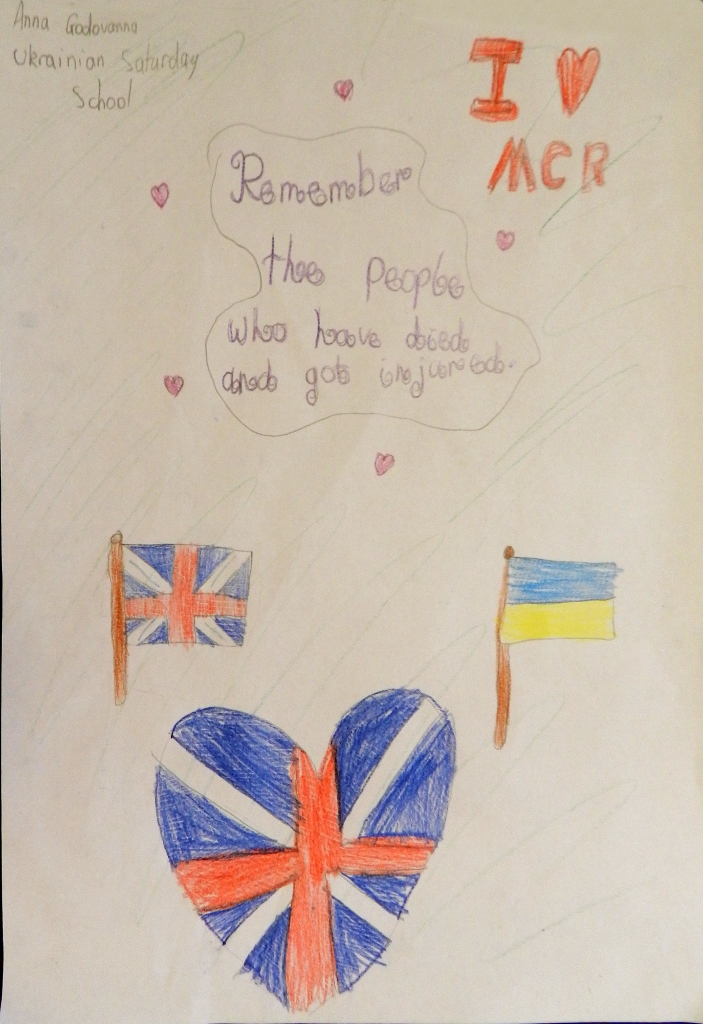 Anna Godovanna
Ukrainian Saturday
School
I ♥
MCR
Remember
the people
who have died
and got injured.